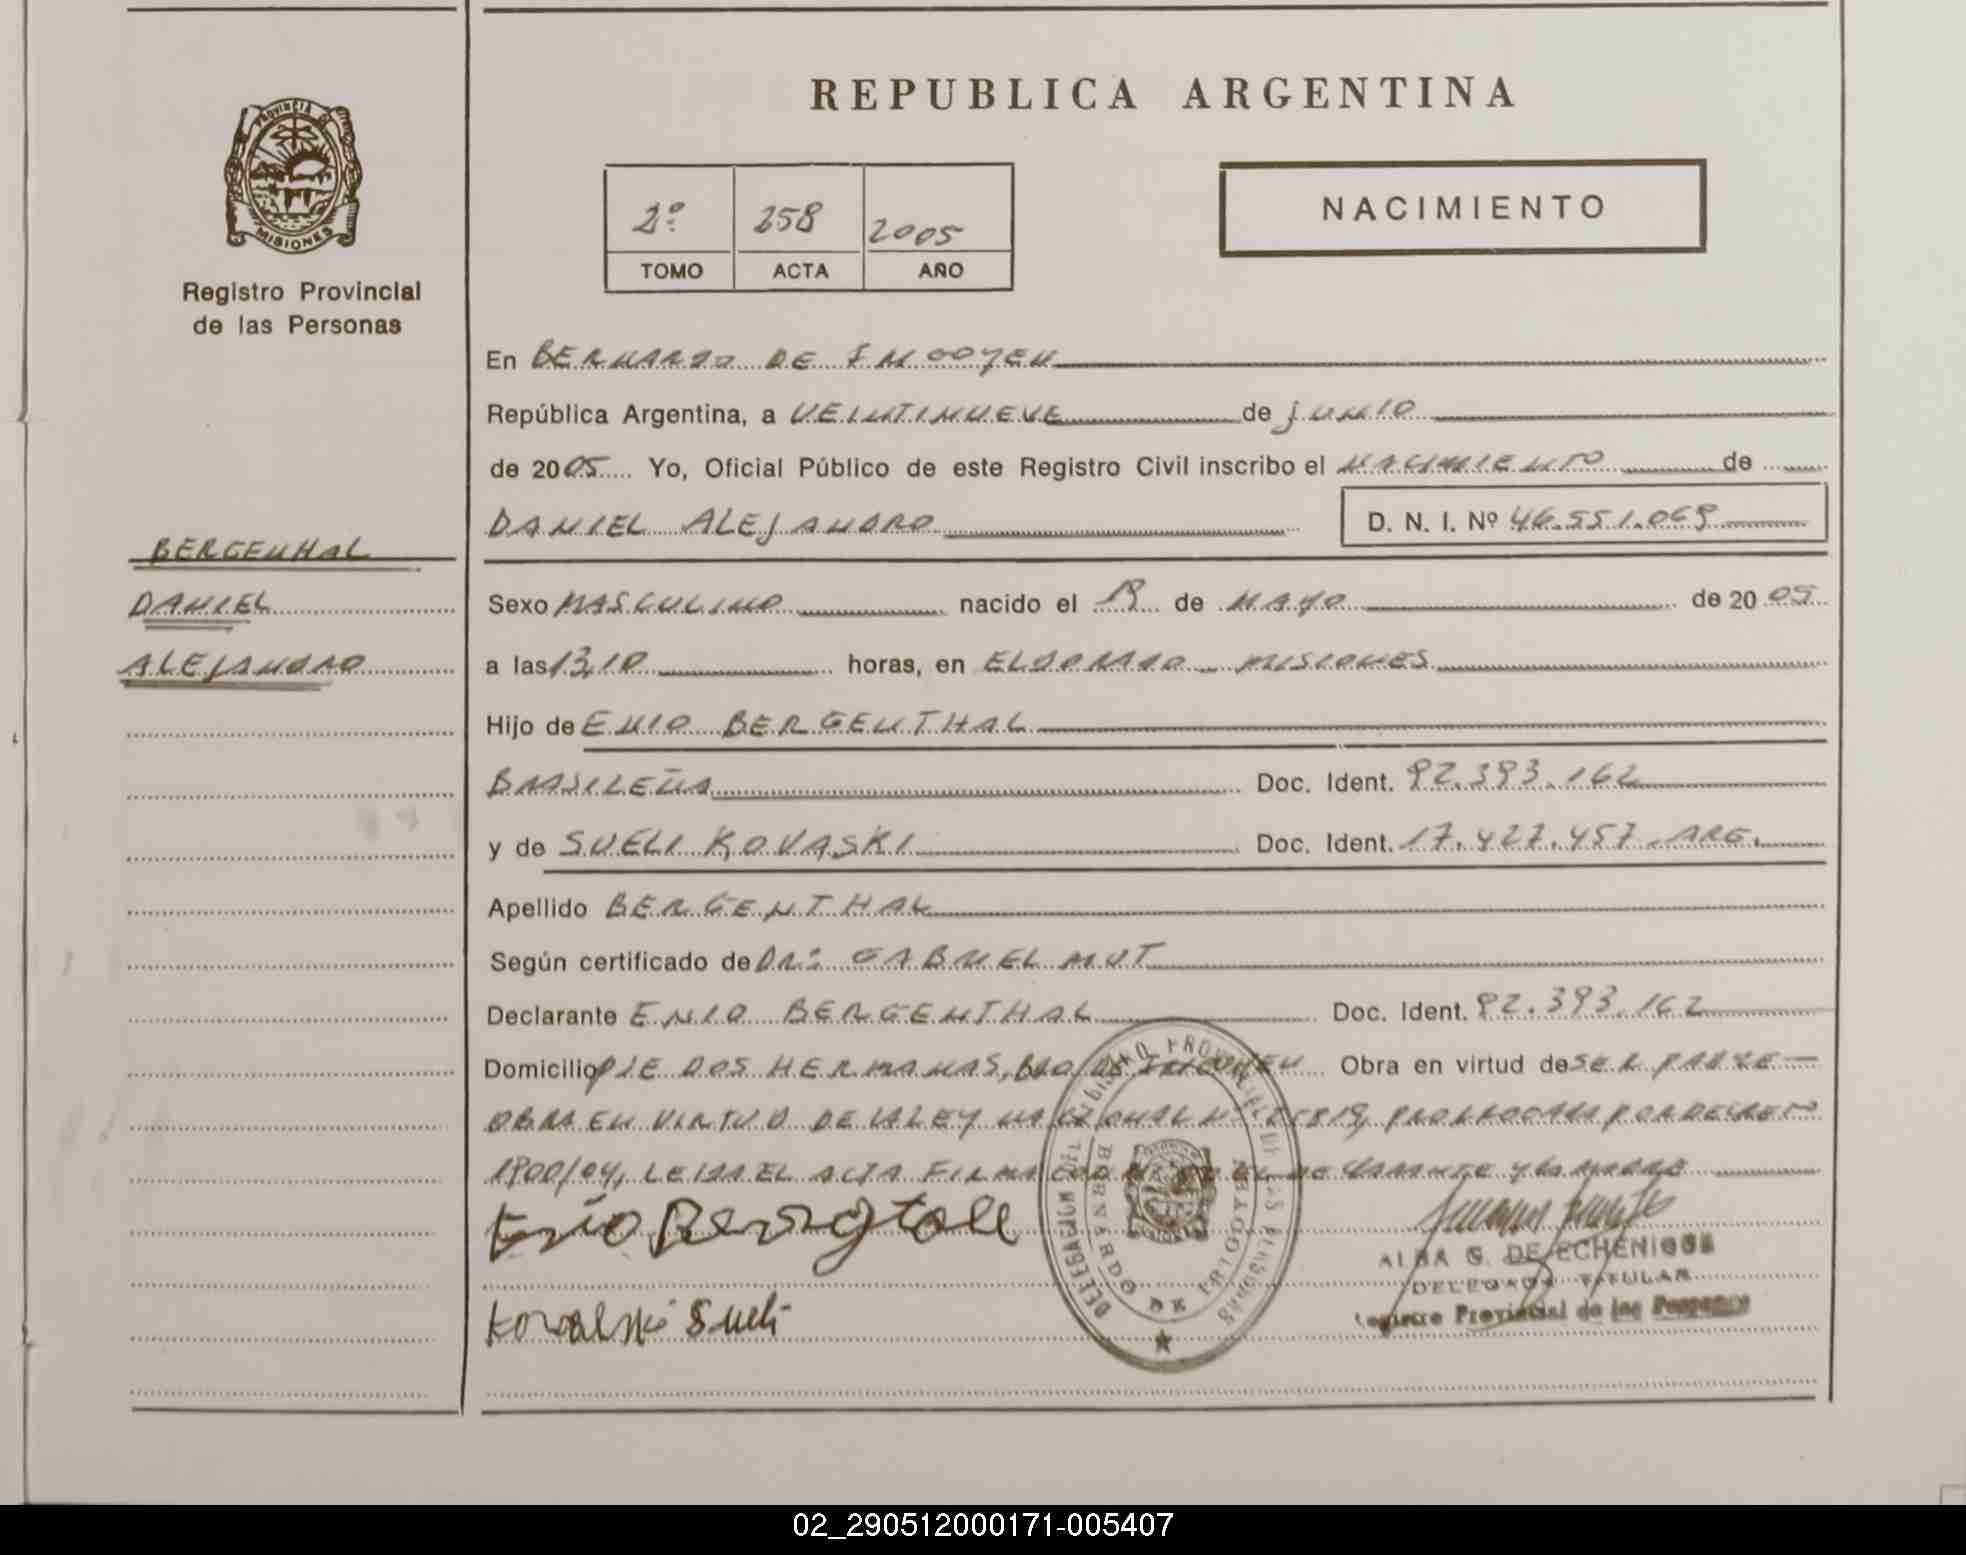 REPUBLICA ARGENTINA
PROVINCIA DE
MISIONES
Registro Provincial
de las Personas
2º 258 2005
TOMO ACTA AÑO
NACIMIENTO
En BERNARDO DE IRIGOYEN
República Argentina, a VEINTINUEVE de junio
de 2005 Yo, Oficial Público de este Registro Civil inscribo el NACIMIENTO de
DANIEL ALEJANDRO D. N. I. Nº 46.551.069
BERGENHAL
DANIEL
ALEJANDRO
Sexo MASCULINO nacido el 19 de MAYO de 2005
a las 13,10 horas, en ELDORADO - MISIONES
Hijo de ENIO BERGENTHAL
BRASILEÑA Doc. Ident. 92.393.162
y de SUELI KOVASKI Doc. Ident. 17.427.457 ARG.
Apellido BERGENTHAL
Según certificado de DR: GABRIEL MUT
Declarante ENIO BERGENTHAL Doc. Ident. 92.393.162
Domicilio PJE DOS HERMANAS, BDO DE IRIGOYEN Obra en virtud de SER PADRE
OBRA EN VIRTUD DE LA LEY NACIONAL Nº PRORROGADA POR DECRETO
1900/04, LEIDA EL ACTA FIRMA EL DECLARANTE Y LA MADRE
Enio
Kovalski Sueli
DELEGACION DEL REGISTRO PROVINCIAL DE LAS PERSONAS
BERNARDO DE IRIGOYEN
ALBA G. DE ECHENIQUE
DELEGADA TITULAR
Registro Provincial de las Personas
02_290512000171-005407